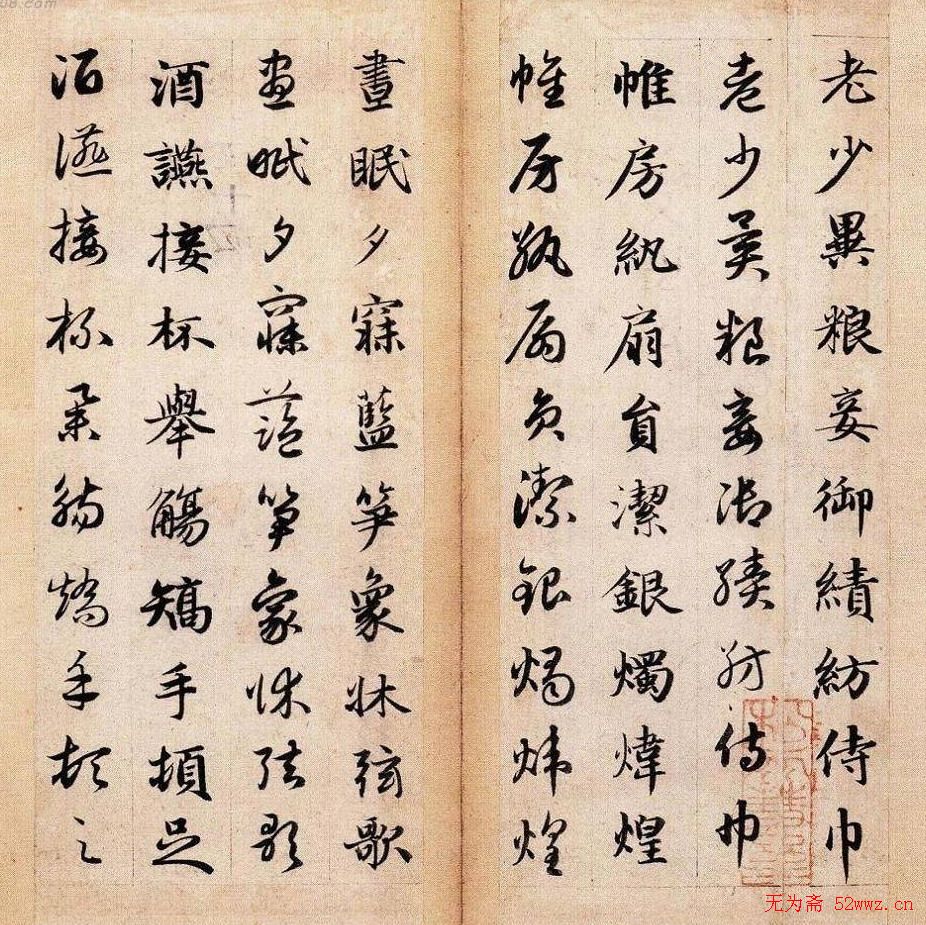 老少異粮妾御績紡侍巾
老少異粮妾御績紡侍巾
帷房紈扇員潔銀燭煒煌
帷房紈扇員潔銀燭煒煌
晝眠夕寐藍笋象牀弦歌
晝眠夕寐藍笋象牀弦歌
酒讌接杯舉觴矯手頓足
酒讌接杯舉觴矯手頓足
08.com
无为斋 52wwz.cn